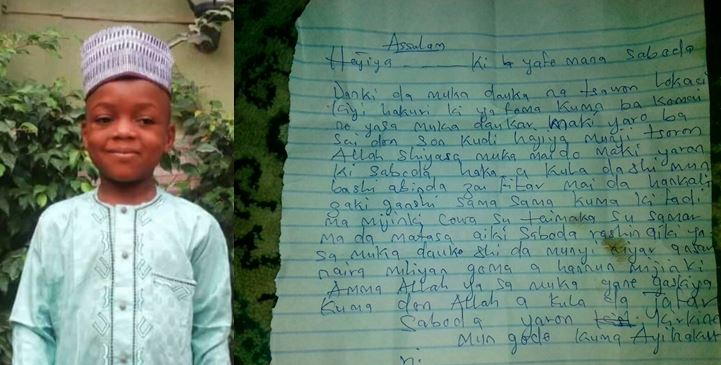 Assalam
Hajiya ki yafe mana saboda
Danki da muka dauka na tsawon lokaci
kiyi hakuri ki yafema kuma ba komai
ne yasa muka daukar maki yaro ba
sai don son kudi hajiya munji tsoron
Allah shiyasa muka maido maki yaron
ki saboda haka a kula dashi mun
bashi abinda zai fitar mai da hankali
gaki ganshi sama sama kuma ki fadi
ma mijinki cewa su taimaka su samar
ma da matasa aiki saboda rashin aiki ya
sa muka dauke shi da munyi niyar
naira miliyan goma a hannun mijinki
Amma Allah ya sa muka gane gaskiya
kuma don Allah a kula da
Saboda yaron kirkine
mun gode kuma Ayi hakuri